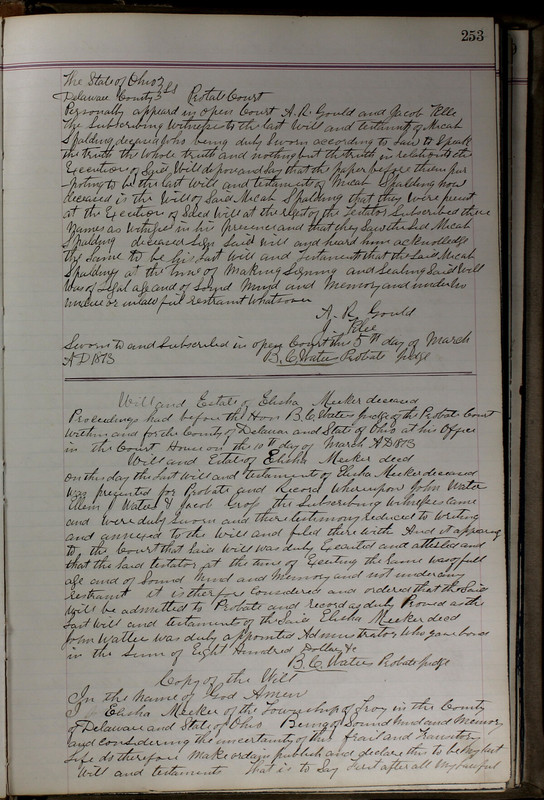 253
The State of Ohio }
Delaware County } SS Probate Court
Personally appeard in open Court A. R. Gould and Jacob
the Subscribing Witnesses to the last Will and testament of Micah
Spalding deceased who being duly Sworn according to Law to Speak
the truth the whole truth and nothing but the truth in relation to the
Execution of Said Will depose and Say that the paper before them pur
porting to be the last Will and testament of Micah Spalding now
deceased is the Will of Said Micah Spalding that they were present
at the Execution of Said Will at the request of the testator Subscribed there
names as witnesses in his presence and that they Saw the Said Micah
Spalding deceased Sign Said Will and heard him acknowledge
the Same to be his last Will and Testament that the Said Micah
Spalding at the time of Making Signing and Sealing Said Will
was of legal age and of Sound Mind and Memory and under no
undue or unlawful restraint whatsoever
A. R. Gould
J.
Sworn to and Subscribed in open Court this 5th day of March
A D 1873 B. C. Waters Probate Judge
Will and Estate of Elisha Meeker deceased
Proceedings had before the Hon B. C. Waters Judge of the Probate Court
within and for the County of Delaware and State of Ohio at his Office
in the Court House on the 10th day of March A D 1873
Will and Estate of Elisha Meeker deced
On this day the last Will and testament of Elisha Meeker deceased
was presented for Probate and Record whereupon John
& Jacob the Subscribing witnesses came
and were duly Sworn and there testimony reduced to writing
and annexed to the Will and filed there with And it appearing
to the Court that Said Will was duly Executed and attested and
that the Said testator at the time of Executing the Same was of full
age and of Sound Mind and Memory and not under any
restraint it is therefore Considered and ordered that the Said
Will be admitted to Probate and record as duly Proved as the
last Will and testament of the Said Elisha Meeker deced
John was duly appointed Administrator who gave bonds
in the Sum of Eight Hundred Dollars &c
B. C. Waters Probate Judge
Copy of the Will
In the Name of God Amen
I Elisha Meeker of the Township of Troy in the County
of Delaware and State of Ohio Being of Sound Mind and Memory
and Considering the uncertainty of this frail and Transitory
Life do therefore Make ordain publish and declare this to be my last
Will and testament That is to Say First after all my lawful